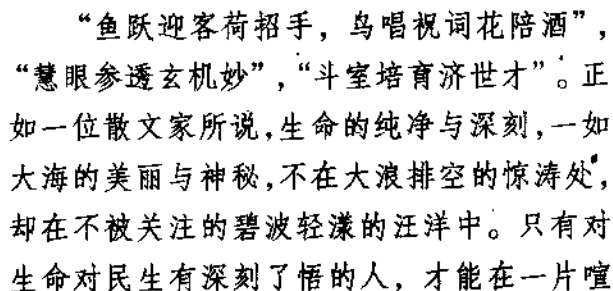 “鱼跃迎客荷招手，鸟唱祝词花陪酒”，
“慧眼参透玄机妙”，“斗室培育济世才”。正
如一位散文家所说，生命的纯净与深刻，一如
大海的美丽与神秘，不在大浪排空的惊涛处，
却在不被关注的碧波轻漾的汪洋中。只有对
生命对民生有深刻了悟的人，才能在一片喧